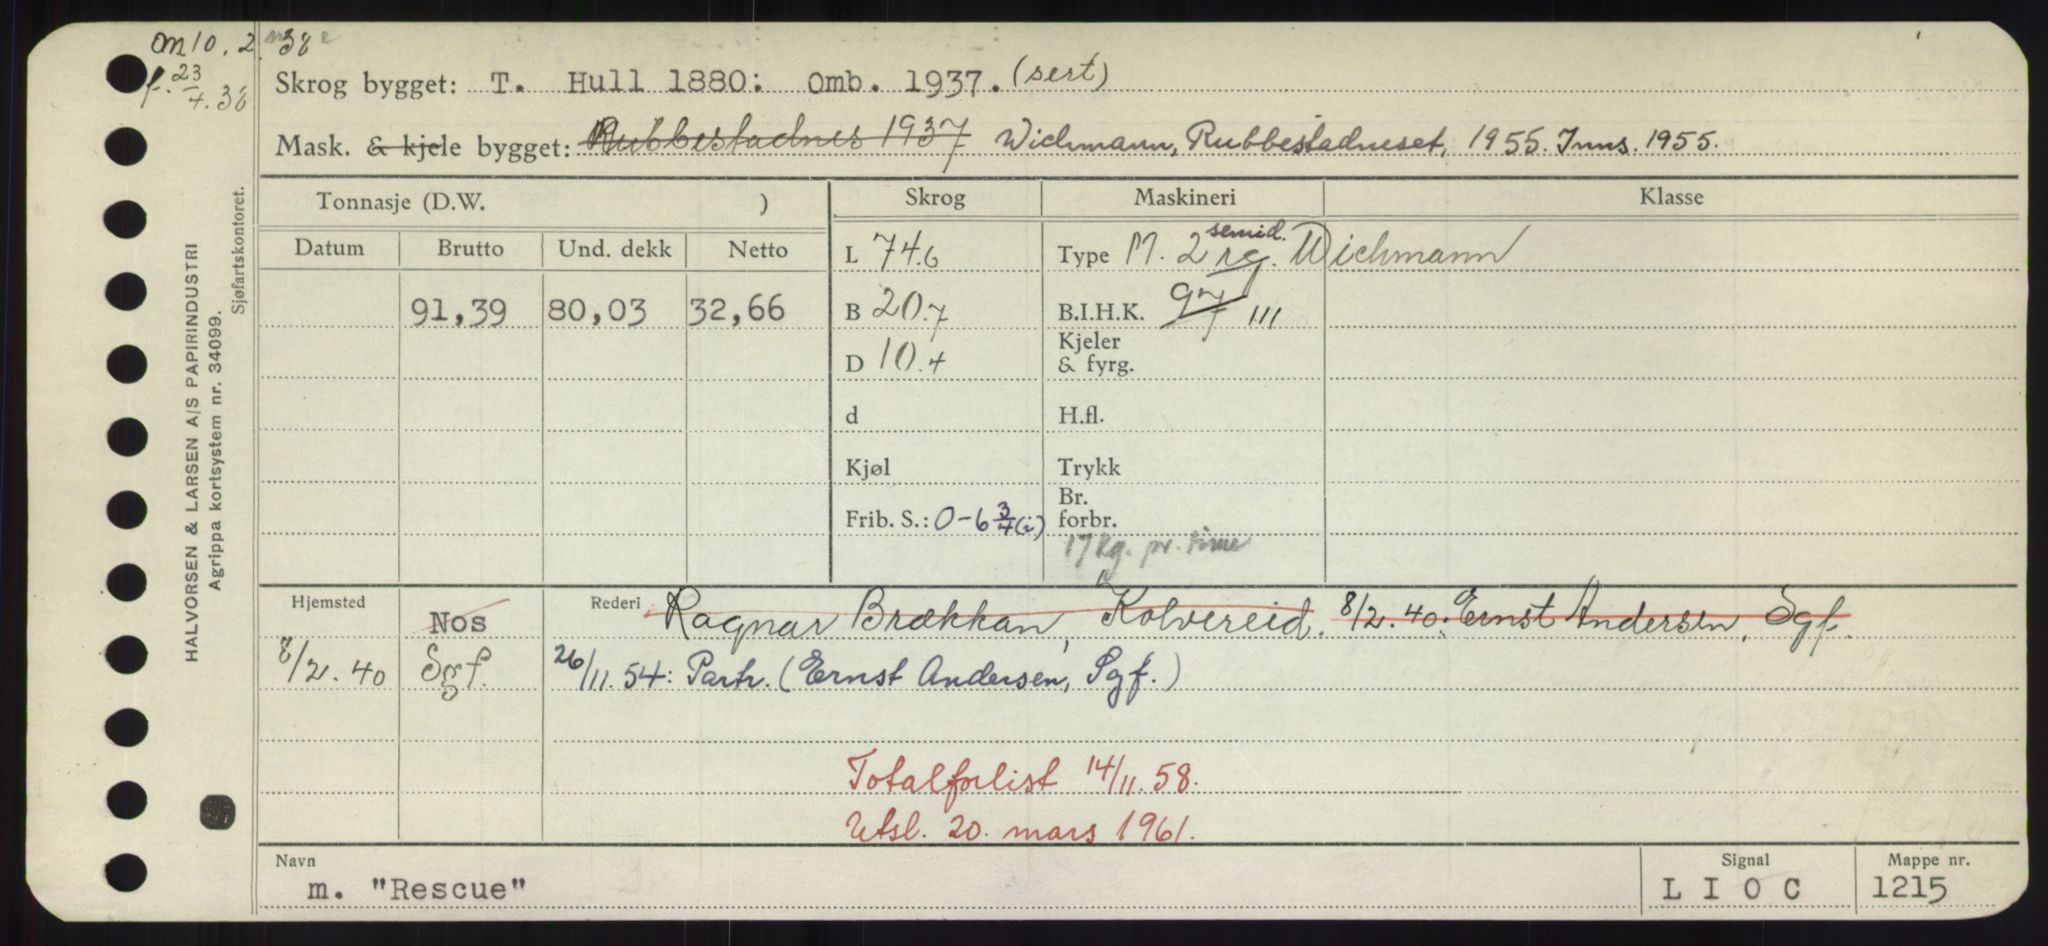 om 10. 2. 38
f. 23/4. 38
Skrog bygget: T. Hull 1880: Omb. 1937. (sert)
Mask. & kjele bygget: Rubbestadnes 1937 Wichmann, Rubbestadneset, 1955. Inns. 1955.
Tonnasje (D.W. )
Skrog
Maskineri
Klasse
Datum Brutto Und. dekk Netto
91,39 80,03 32,66
L 74.6
B 20.7
D 10.4
d
Kjøl
Frib. S.: 0-6 3/4 (i)
semid.
Type M. 2 rg. Wichmann
B.I.H.K. 97 111
Kjeler
& fyrg.
H.fl.
Trykk
Br.
forbr.
17 kg. pr. time
Hjemsted Nos Rederi Ragnar Brækkan, Kolvereid. 8/2. 40: Ernst Andersen, Sgf.
8/2. 40 Sgf. 26/11. 54: Partr. (Ernst Andersen, Sgf.)
Totalforlist 14/11. 58.
Utsl. 20. mars 1961.
Navn
m. "Rescue"
Signal
L I O C
Mappe nr.
1215
HALVORSEN & LARSEN A/S PAPIRINDUSTRI
Agrippa kortsystem nr. 34099.
Sjøfartskontoret.